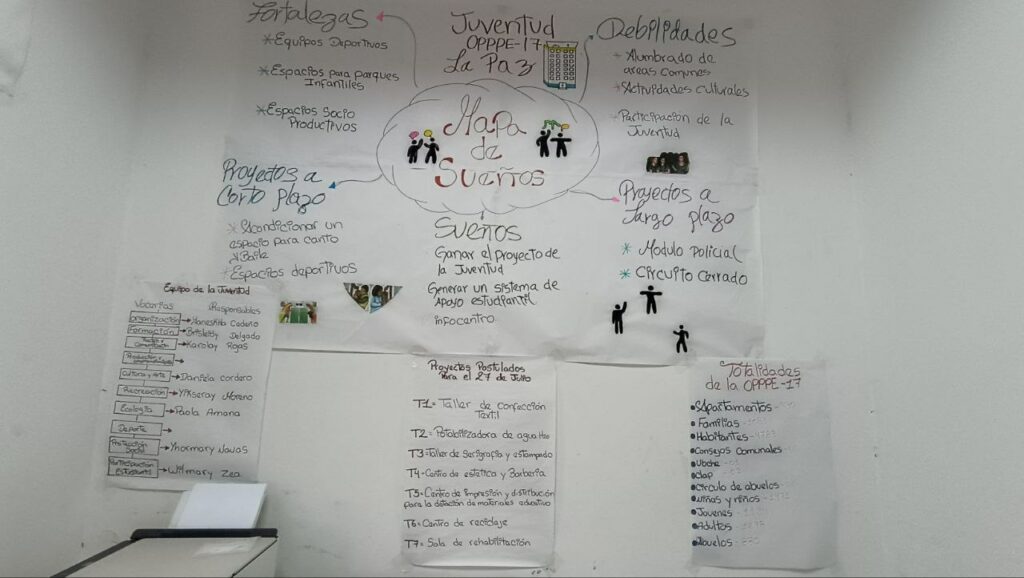 Fortalezas
*Equipos Deportivos
*Espacios para parques
Infantiles
*Espacios Socio
Productivos
Juventud
OPPPE-17
La Paz
Debilidades
*Alumbrado de
areas comunes
*Actividades culturales
*Participación de la
Juventud
Mapa
de
Sueños
Proyectos a
Corto plazo
*Acondicionar un
espacio para canto
y Baile
*Espacios deportivos
Sueños
Ganar el proyecto de
la Juventud
Generar un sistema de
Apoyo estudiantil
infocentro
Proyectos a
largo plazo
* Modulo policial
* Circuito Cerrado
Equipo de la Juventud
Vocerías Responsables
Organización
Formación Delgado
Karolay Rojas
Cultura y Arte Daniela cordero
Recreación Moreno
Ecología Paola Amana
Deporte
Protección
Social Yhormary Navas
Participación
Estudiantil Wilmary Zea
Proyectos Postulados
Para el 27 de Julio
T1= Taller de Confección
Textil
T2= Potabilizadora de agua
T3=Taller de Serigrafía y estampado
T4= Centro de estética y Barbería
T5= Centro de impresión y distribución
para la dotación de materiales educativo
T6= Centro de reciclaje
T7= Sala de rehabilitación
Totalidades
de la OPPPE-17
Apartamentos
Familias
Habitantes
Consejos comunales
Ubche
clap
Circulo de abuelos
niñas y niños
Jovenes
Adultos
Abuelos